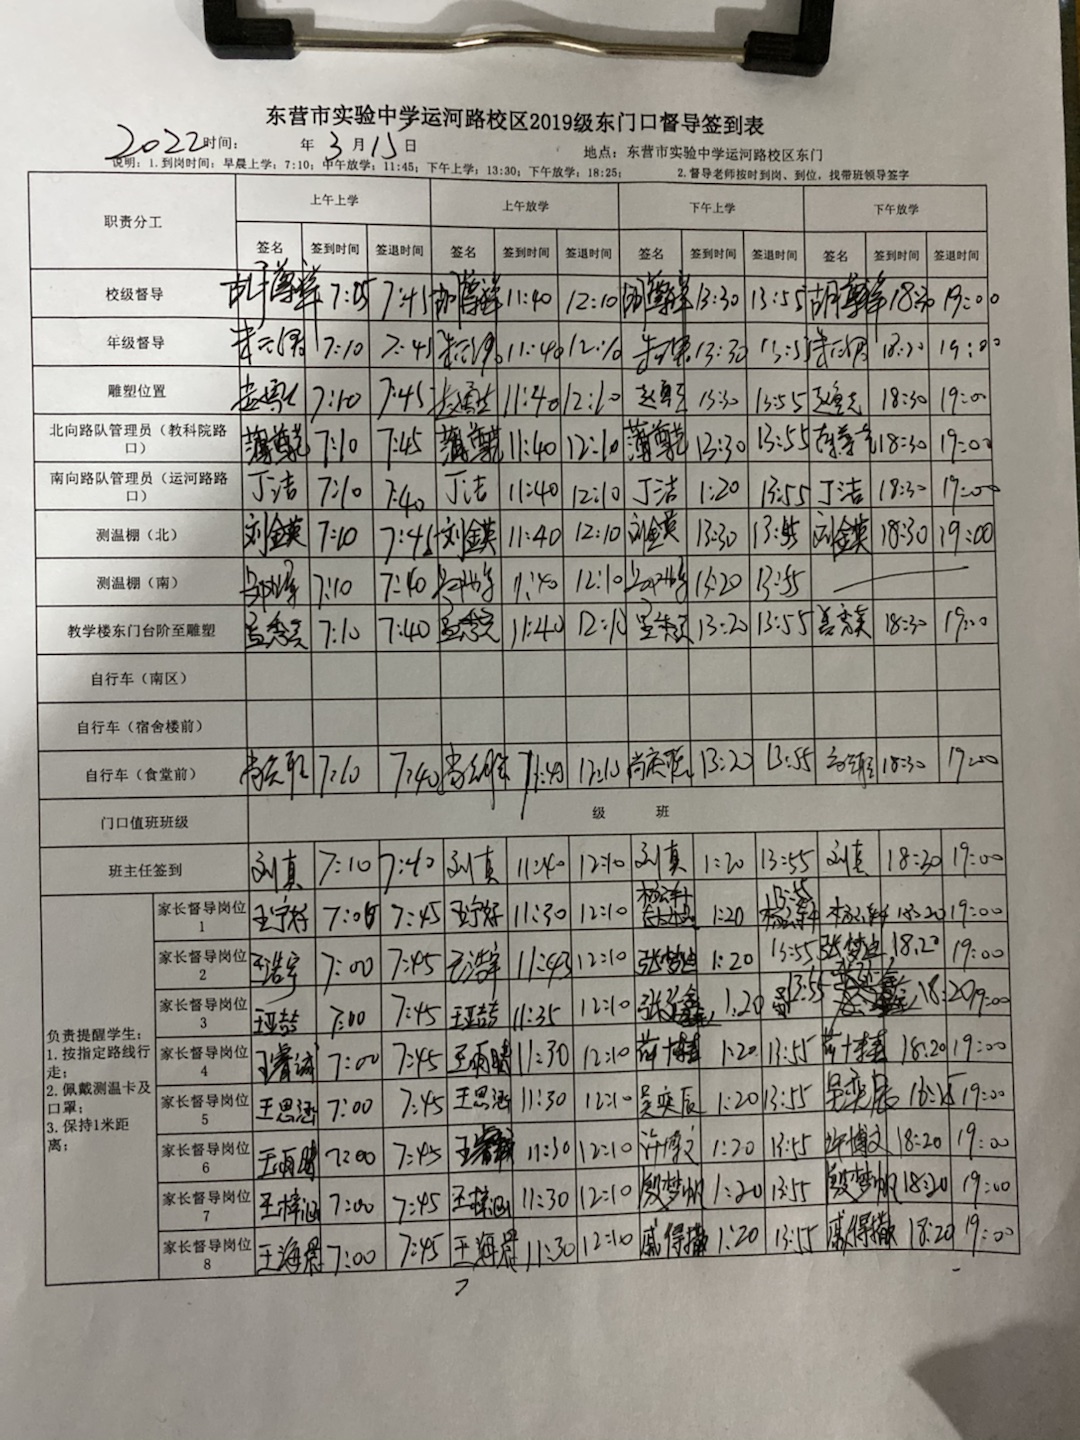 东营市实验中学运河路校区2019级东门口督导签到表
2022 时间： 年 3 月 15 日 地点：东营市实验中学运河路校区东门
说明：1.到岗时间：早晨上学：7:10；中午放学：11:45；下午上学：13:30；下午放学：18:25； 2.督导老师按时到岗、到位，找带班领导签字
职责分工 上午上学 上午放学 下午上学 下午放学
签名 签到时间 签退时间 签名 签到时间 签退时间 签名 签到时间 签退时间 签名 签到时间 签退时间
校级督导 胡尊祥 7:05 7:45 胡尊祥 11:40 12:10 胡尊祥 13:30 13:55 胡尊祥 18:30 19:00
年级督导 7:10 7:45 11:40 12:10 13:30 13:55 18:20 19:00
雕塑位置 7:10 7:45 11:40 12:10 13:30 13:55 18:30 19:00
北向路队管理员（教科院路口） 7:10 7:45 11:40 12:10 13:30 13:55 18:30 19:00
南向路队管理员（运河路路口） 丁洁 7:10 7:40 丁洁 11:40 12:10 丁洁 1:20 13:55 丁洁 18:30 19:00
测温棚（北） 刘金英 7:10 7:45 刘金英 11:40 12:10 刘金英 13:30 13:55 刘金英 18:30 19:00
测温棚（南） 7:10 7:40 11:40 12:10 13:20 13:55
教学楼东门台阶至雕塑 7:10 7:40 11:40 12:10 13:20 13:55 18:30 19:00
自行车（南区）
自行车（宿舍楼前）
自行车（食堂前） 7:10 7:40 11:40 12:10 13:20 13:55 18:30 19:00
门口值班班级 级 班
班主任签到 刘真 7:10 7:40 刘真 11:40 12:10 刘真 1:20 13:55 刘真 18:30 19:00
负责提醒学生：
1.按指定路线行走；
2.佩戴测温卡及口罩；
3.保持1米距离；
家长督导岗位1 王宁好 7:00 7:45 王宁好 11:30 12:10 1:20 13:55 18:20 19:00
家长督导岗位2 王浩宇 7:00 7:45 王浩宇 11:43 12:10 张梦迪 1:20 13:55 张梦迪 18:20 19:00
家长督导岗位3 王亚喆 7:00 7:45 王亚喆 11:35 12:10 1:20 13:55 18:20 19:00
家长督导岗位4 王睿诚 7:00 7:45 王雨晴 11:30 12:10 1:20 13:55 18:20 19:00
家长督导岗位5 王思涵 7:00 7:45 王思涵 11:30 12:10 吴奕辰 1:20 13:55 吴奕辰 19:00
家长督导岗位6 王雨晴 7:00 7:45 11:30 12:10 许博文 1:20 13:55 许博文 18:20 19:00
家长督导岗位7 王梓涵 7:00 7:45 王梓涵 11:30 12:10 殷梦帆 1:20 13:55 殷梦帆 18:20 19:00
家长督导岗位8 王海君 7:00 7:45 王海君 11:30 12:10 戚得撒 1:20 13:55 戚得撒 18:20 19:00